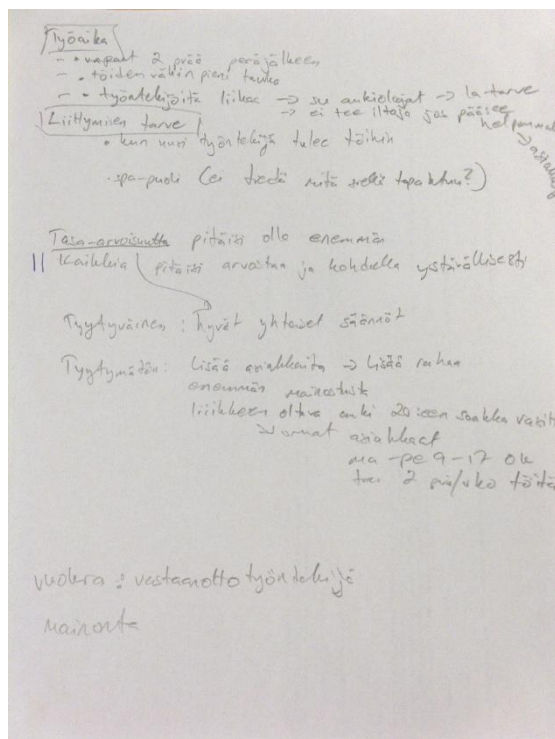 Työaika
- • vapaat 2 pvää peräjälkeen
- • töiden välin pieni tauko
- • työntekijöitä liikaa → su aukiolojat → la tarve
→ ei tee iltoja jos pääsee helpommalla
Liittymisen tarve
• kun uusi työntekijä tulee töihin
• spa-puoli (ei tiedä mitä siellä tapahtuu?)
Tasa-arvoisuutta pitäisi olla enemmän
Kaikkia pitäisi arvostaa ja kohdella ystävällisesti
Tyytyväinen : hyvät yhteiset säännöt
Tyytymätön : Lisää asiakkaita → lisää rahaa
enemmän mainostusta
liikkeen oltava auki 20:een saakka
→ omat asiakkaat
ma - pe 9-17 ok
tai 2 pvä/vko töitä
vuokra : vastaanottotyöntekijä
mainonta